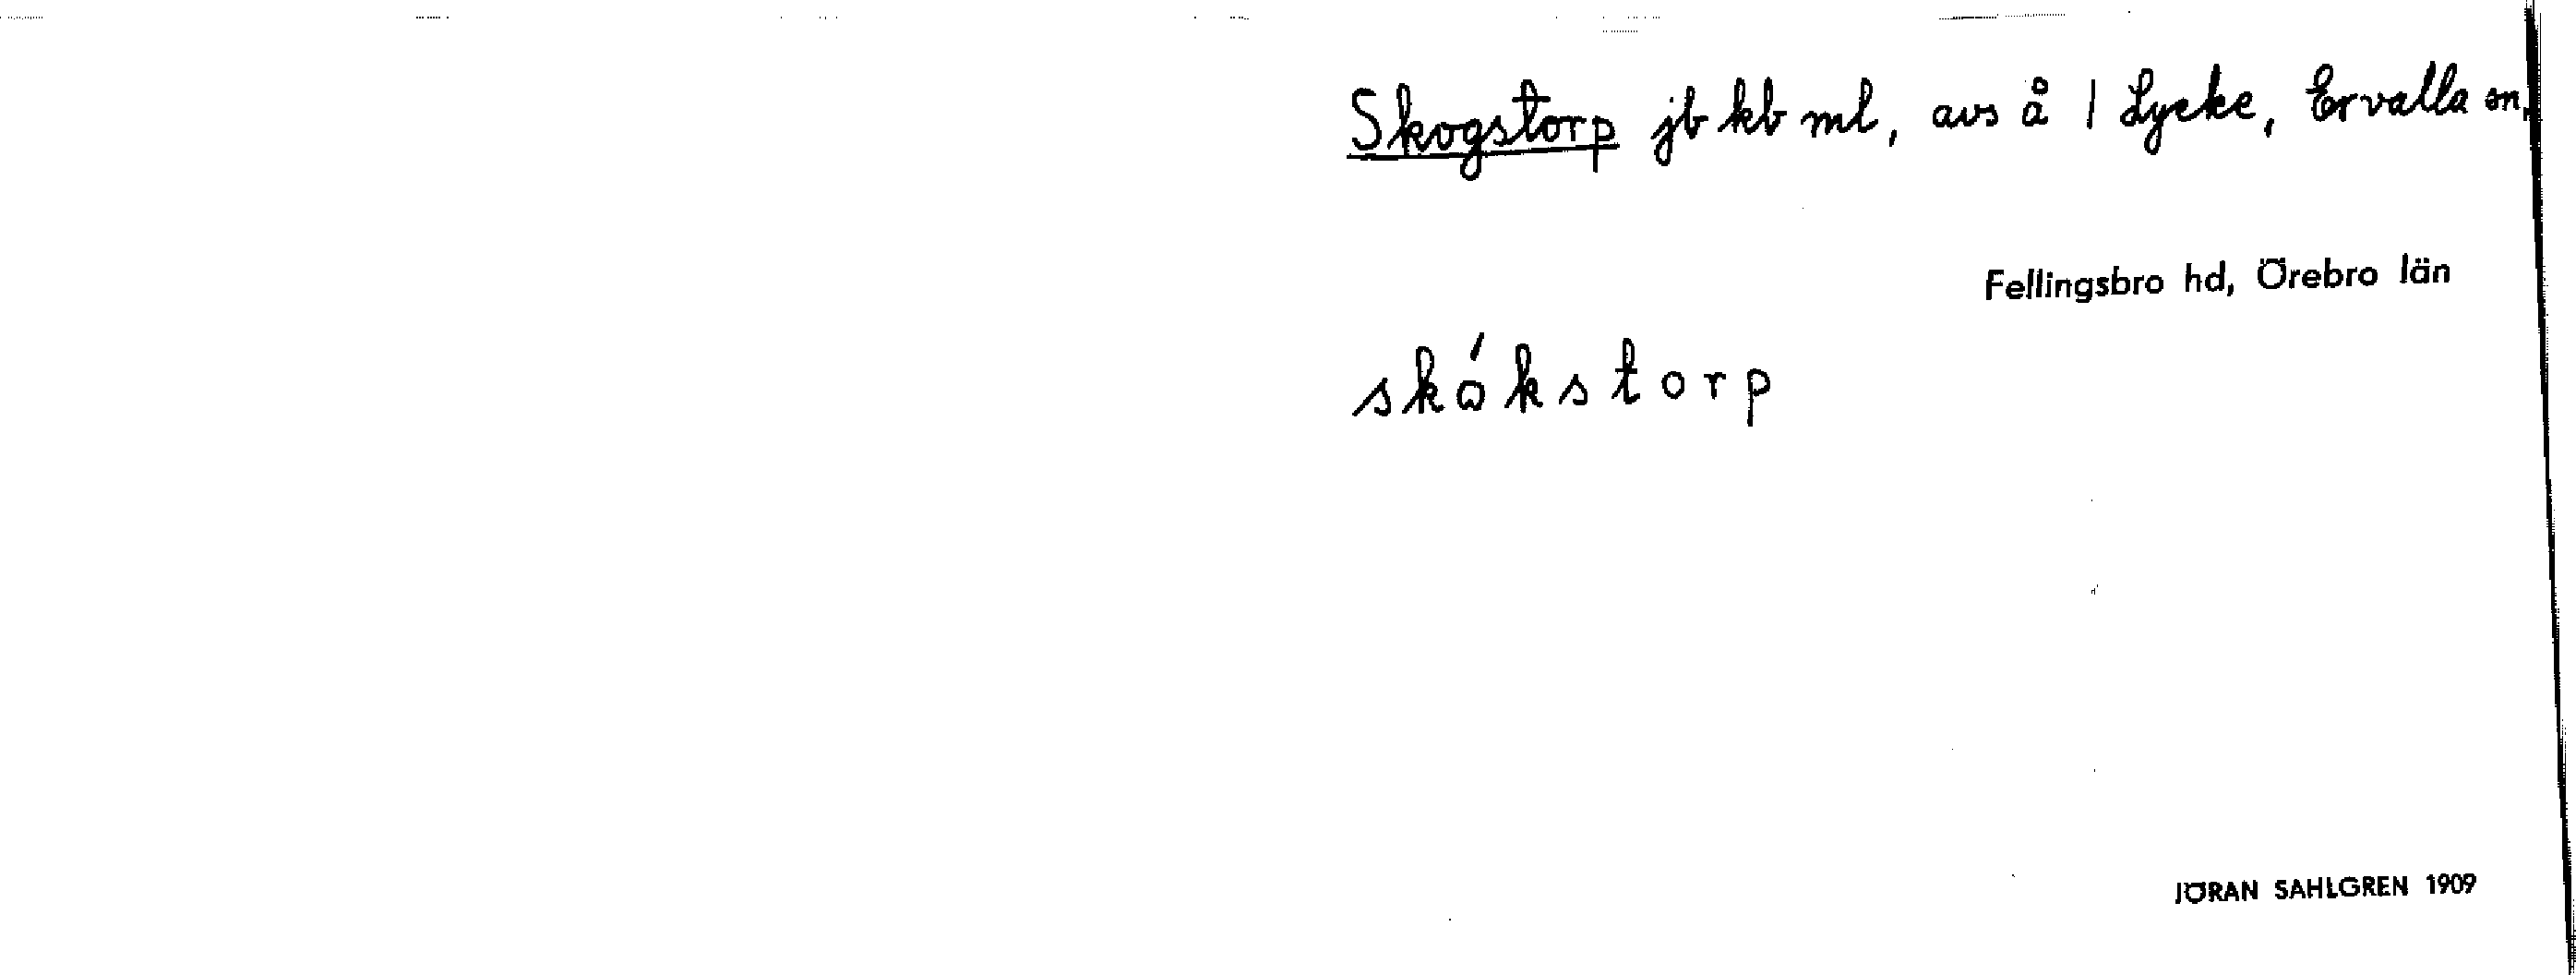 Skogstorp jb kb ml, avs å 1 Lycke, Ervalla sn,
Fellingsbro hd, Örebro län
skókstorp
JÖRAN SAHLGREN 1909